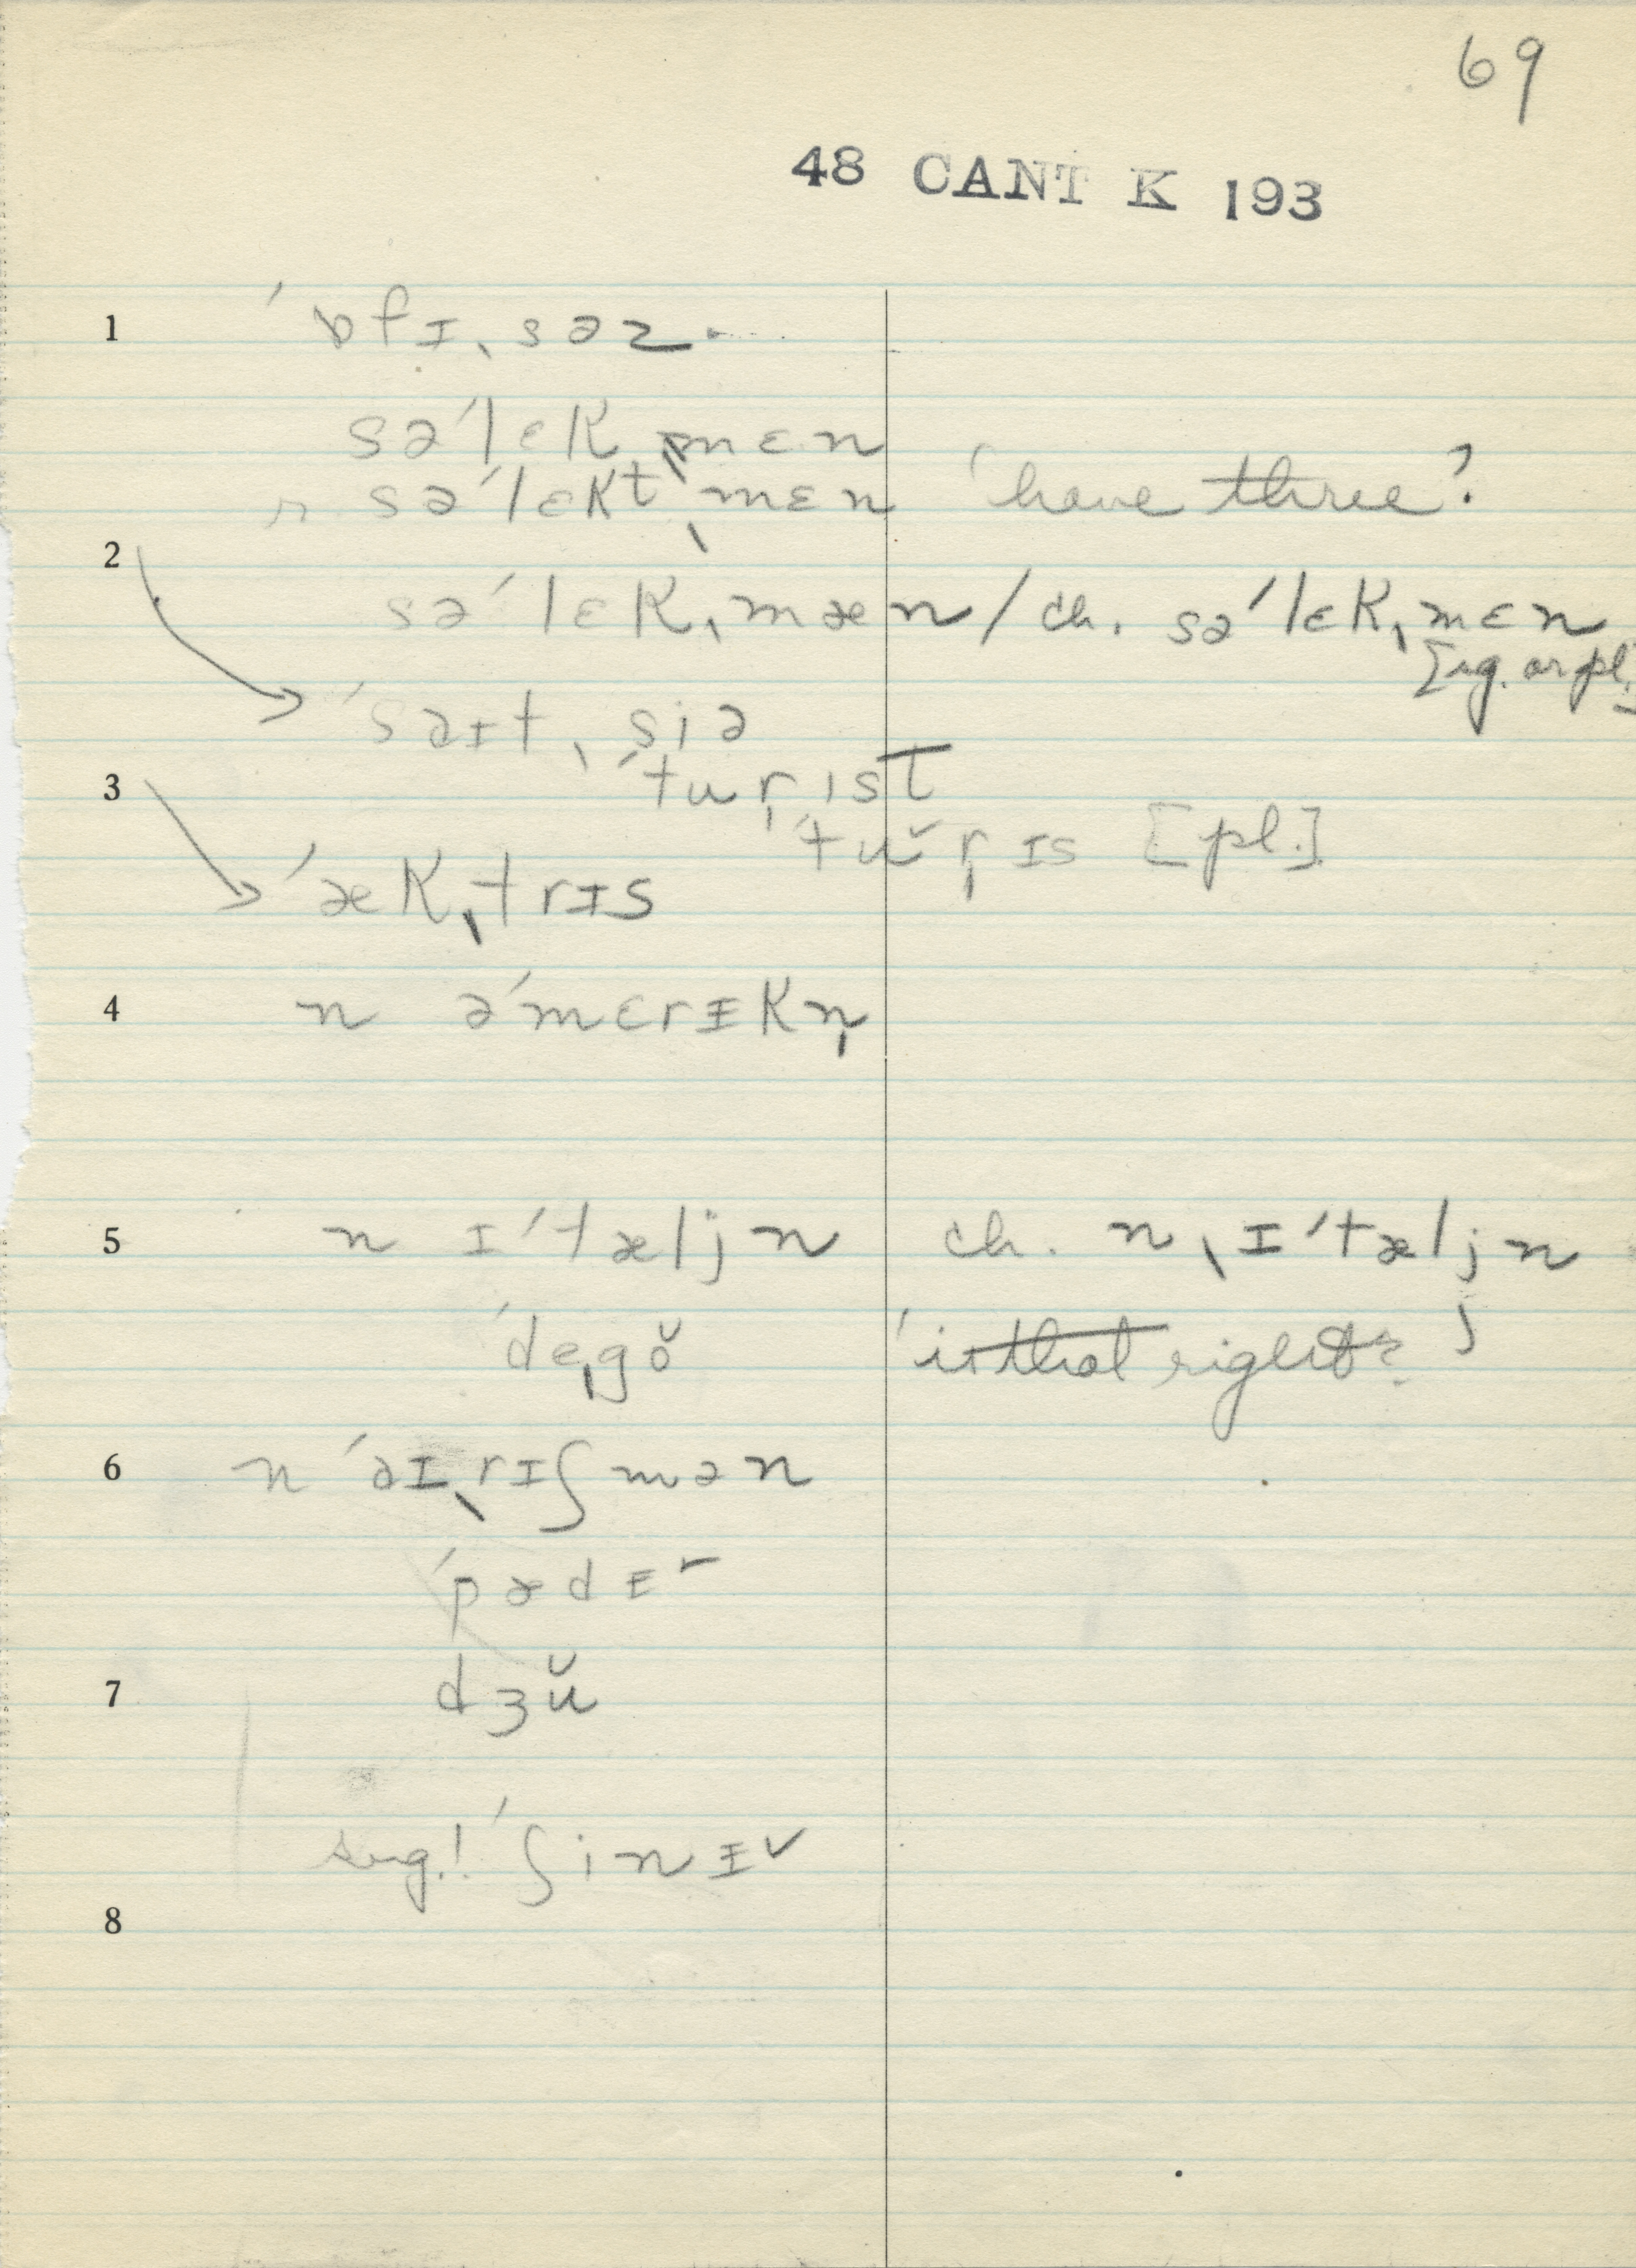 69
48 CANT K 193
1 ˈɒfɪˌsəz
səˈlɛkˌmɛn
r. səˈlɛktˌmɛn 'have three?'
2 səˈlɛkˌmæn / ch. səˈlɛkˌmɛn
[sg. or pl.]
ˈsaɪtˌsiə
3 ˈtur̩ˌɪst
ˈtŭr̩ɪs [pl.]
ˈækˌtrɪs
4 n əˈmɛrɪkn̩
5 n ɪˈtæljn ch. nˌɪˈtæljn
ˈdeˌgŏ 'is that right?'
6 n ˈaɪˌrɪʃmən
ˈpædɪ˘
7 dʒŭ
sug.! ˈʃinɪ˘
8